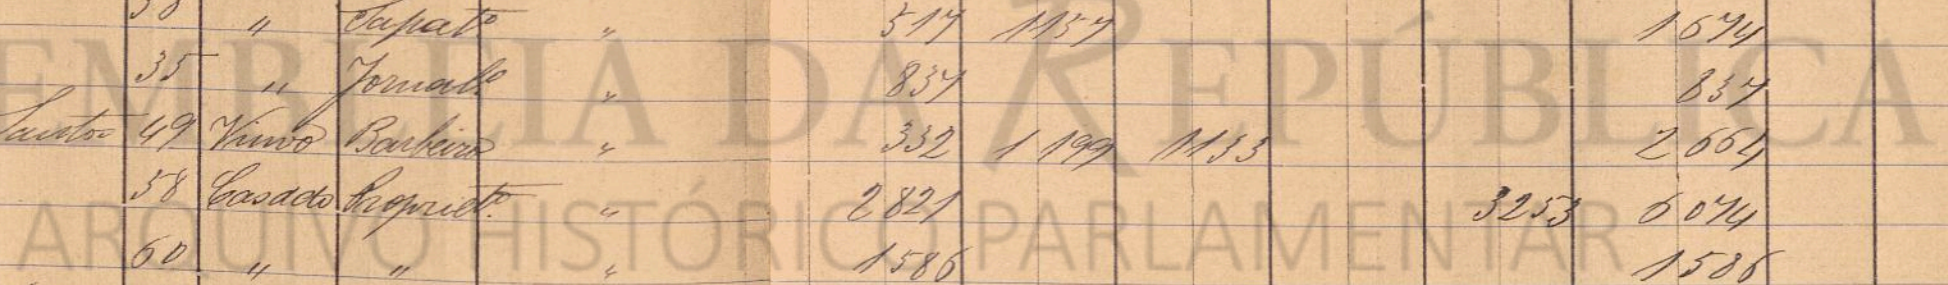 38 " Sapat.º " 517 1157 1674
35 " Jornal.º " 837 837
Santos 49 Viuvo Barbeiro " 332 1 199 1133 2 664
58 Casado Propriet.º " 2 821 3253 6 074
60 " " " 1 586 1 586
ASSEMBLEIA DA REPÚBLICA
ARQUIVO HISTÓRICO PARLAMENTAR